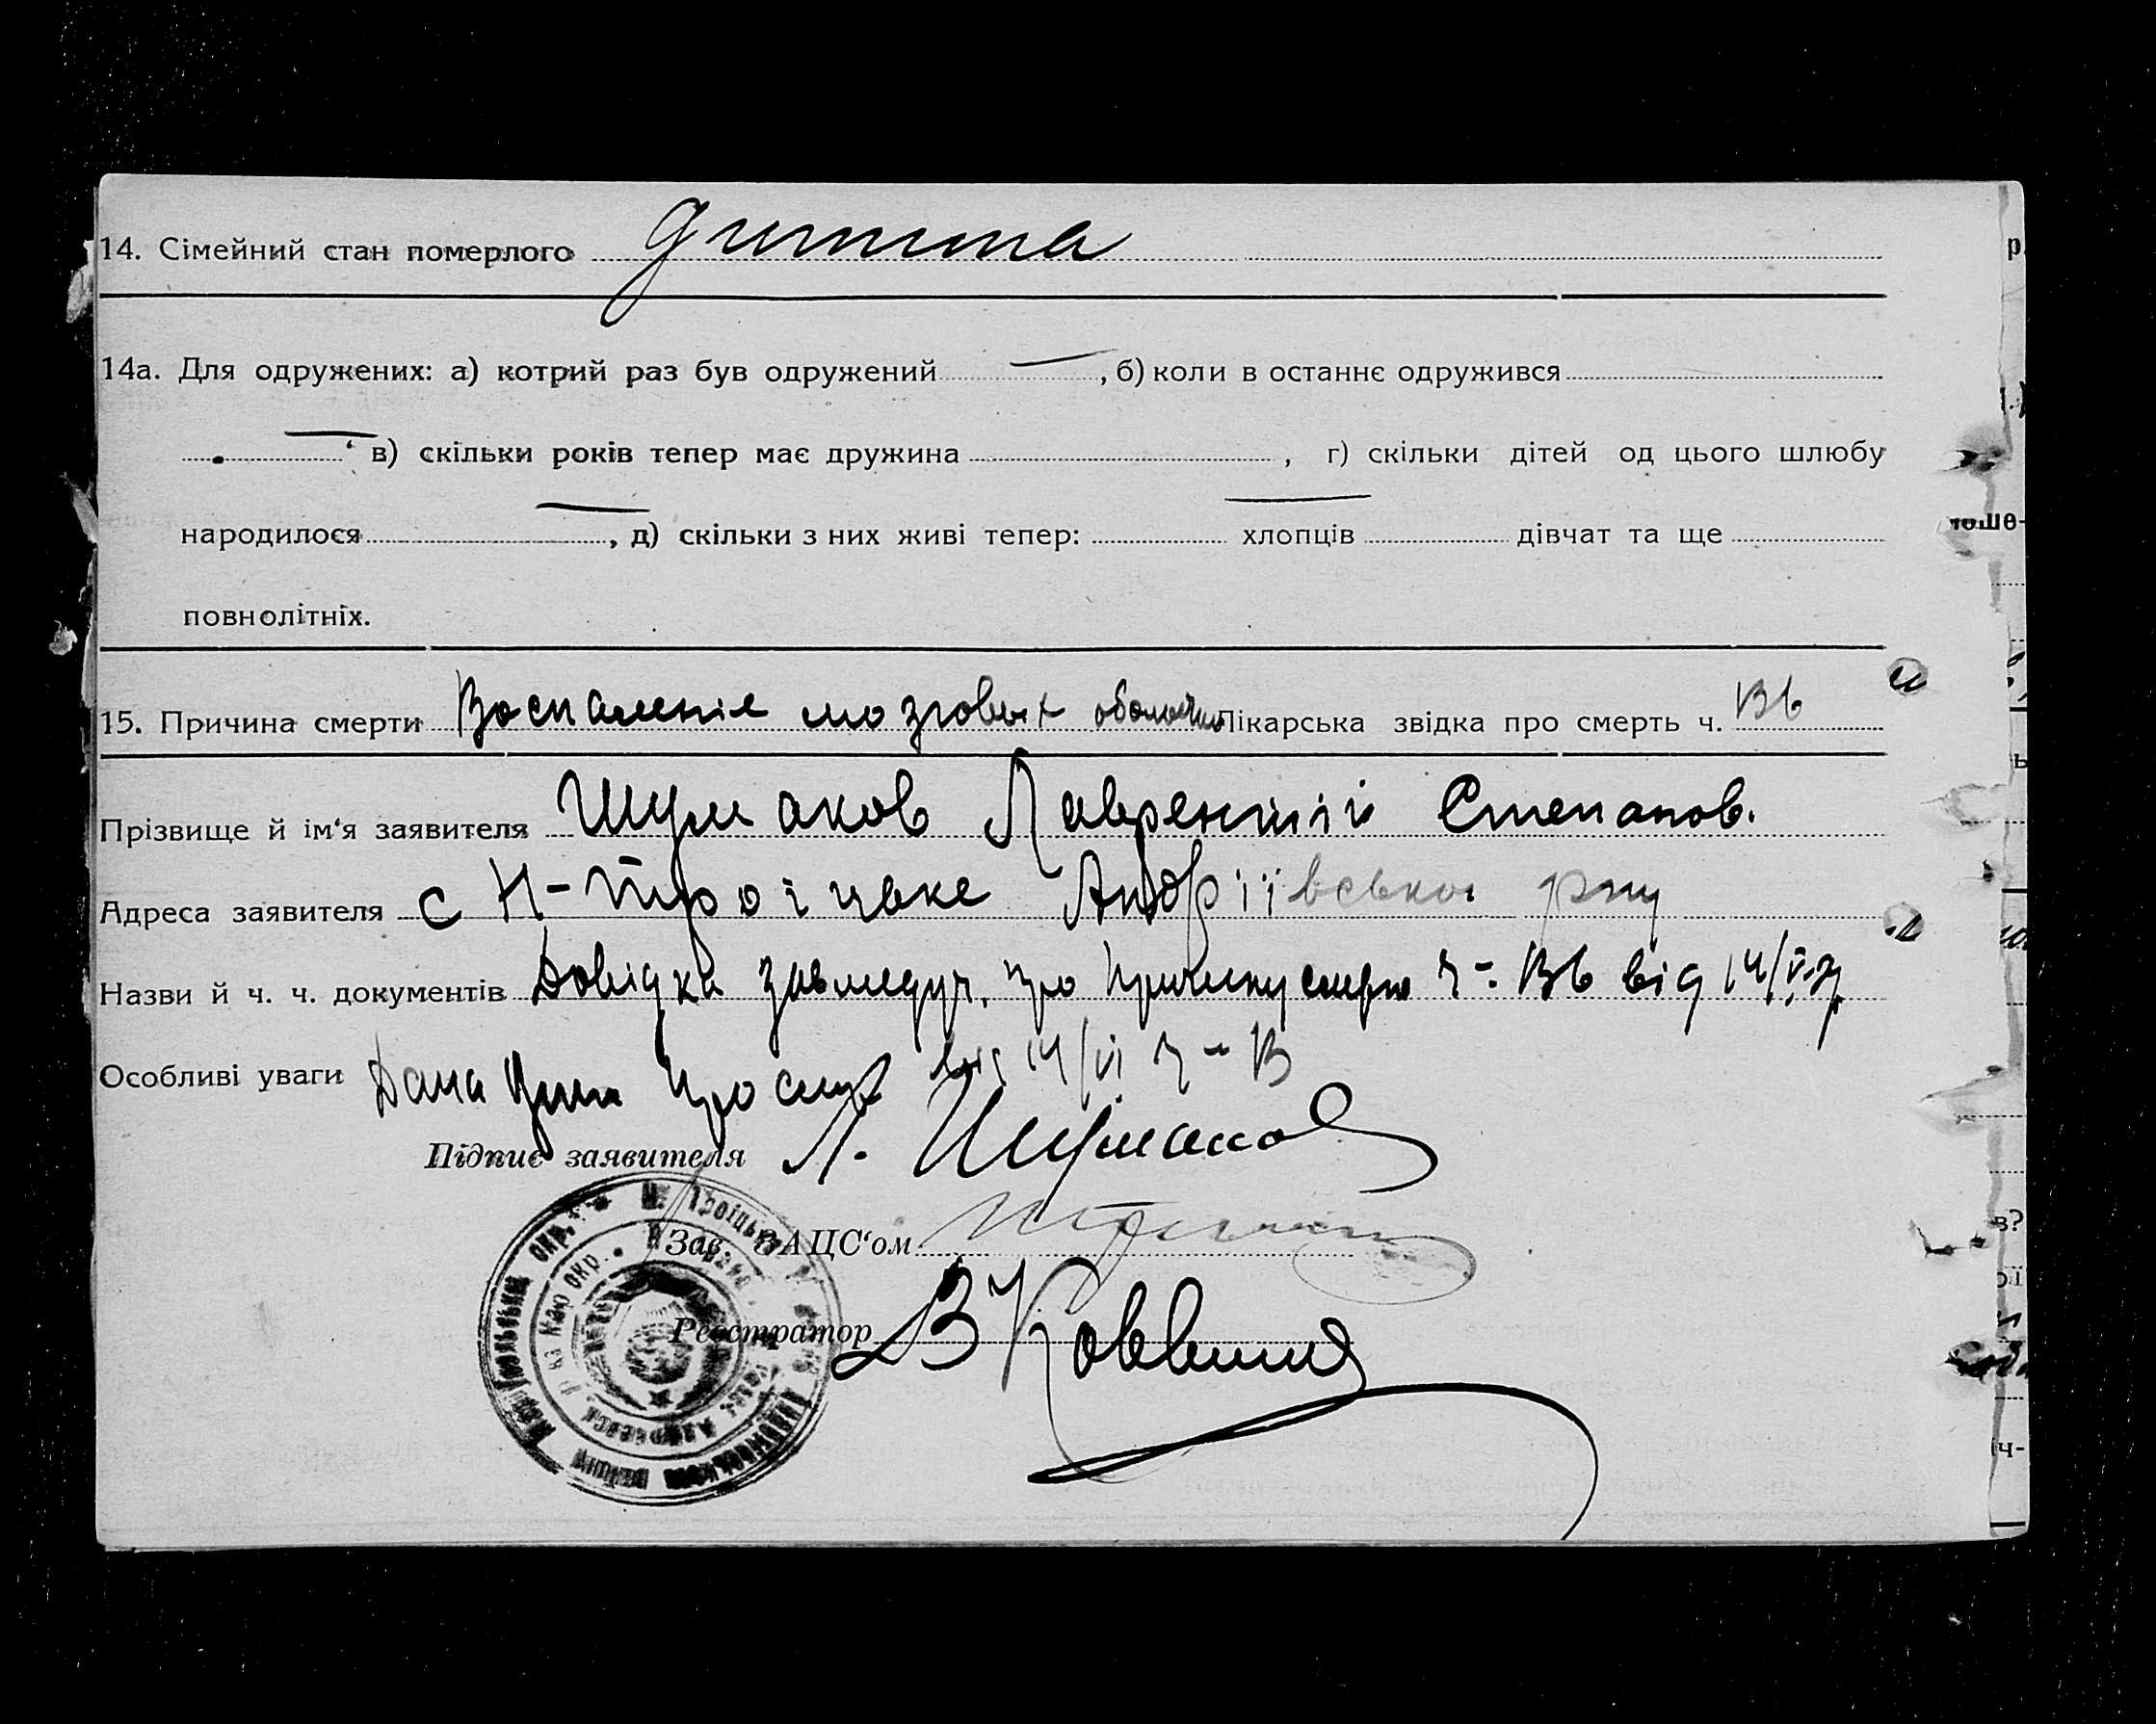 14. Сімейний стан померлого дитина
14а. Для одружених: а) котрий раз був одружений — , б) коли в останнє одружився
— в) скільки років тепер має дружина , г) скільки дітей од цього шлюбу
народилося — , д) скільки з них живі тепер: — хлопців дівчат та ще
повнолітніх.
15. Причина смерти Воспаление мозговых оболочек Лікарська звідка про смерть ч. 136
Прізвище й ім'я заявителя Шумаков Лаврентій Степанов.
Адреса заявителя с Н-Троїцьке Андріївської р-ну
Назви й ч. ч. документів Довідка завмедуч. про причину смерти ч- 136 від 14/VI
Особливі уваги Дана про смер від 14/VI ч-
Підпис заявителя Л. Шумаков
Зав. ЗАЦС'ом
Реєстратор В